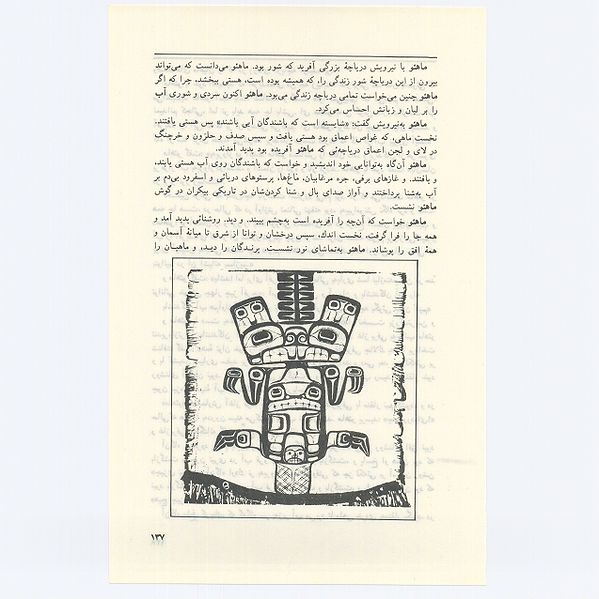 ماهئو با نیرویش دریاچهٔ بزرگی آفرید که شور بود. ماهئو می‌دانست که می‌تواند
بیرون از این دریاچهٔ شور زندگی را، که همیشه بوده است، هستی ببخشد، چرا که اگر
ماهئو چنین می‌خواست تمامی دریاچه زندگی می‌بود. ماهئو اکنون سردی و شوری آب
را بر لبان و زبانش احساس می‌کرد.
ماهئو به‌نیرویش گفت: «شایسته است که باشندگان آبی باشند» پس هستی یافتند.
نخست ماهی، که غواص اعماق بود هستی یافت و سپس صدف و حلزون و خرچنگ
در لای و لجن اعماق دریاچه‌ئی که ماهئو آفریده بود بدید آمدند.
ماهئو آن‌گاه به‌توانایی خود اندیشید و خواست که باشندگان روی آب هستی یابند،
و یافتند. و غازهای برفی، جره مرغابیان، ماغ‌ها، پرستوهای دریائی و اسفرود بی‌دم بر
آب به‌شنا پرداختند و آواز صدای بال و شنا کردن‌شان در تاریکی بیکران در گوش
ماهئو نشست.
ماهئو خواست که آن‌چه را آفریده است به‌چشم ببیند. و دید. روشنائی پدید آمد و
همه جا را فرا گرفت، نخست اندك، سپس درخشان و توانا از شرق تا میانهٔ آسمان و
همهٔ افق را پوشاند. ماهئو به‌تماشای نور نشست. پرندگان را دید، و ماهیان را
۱۳۷